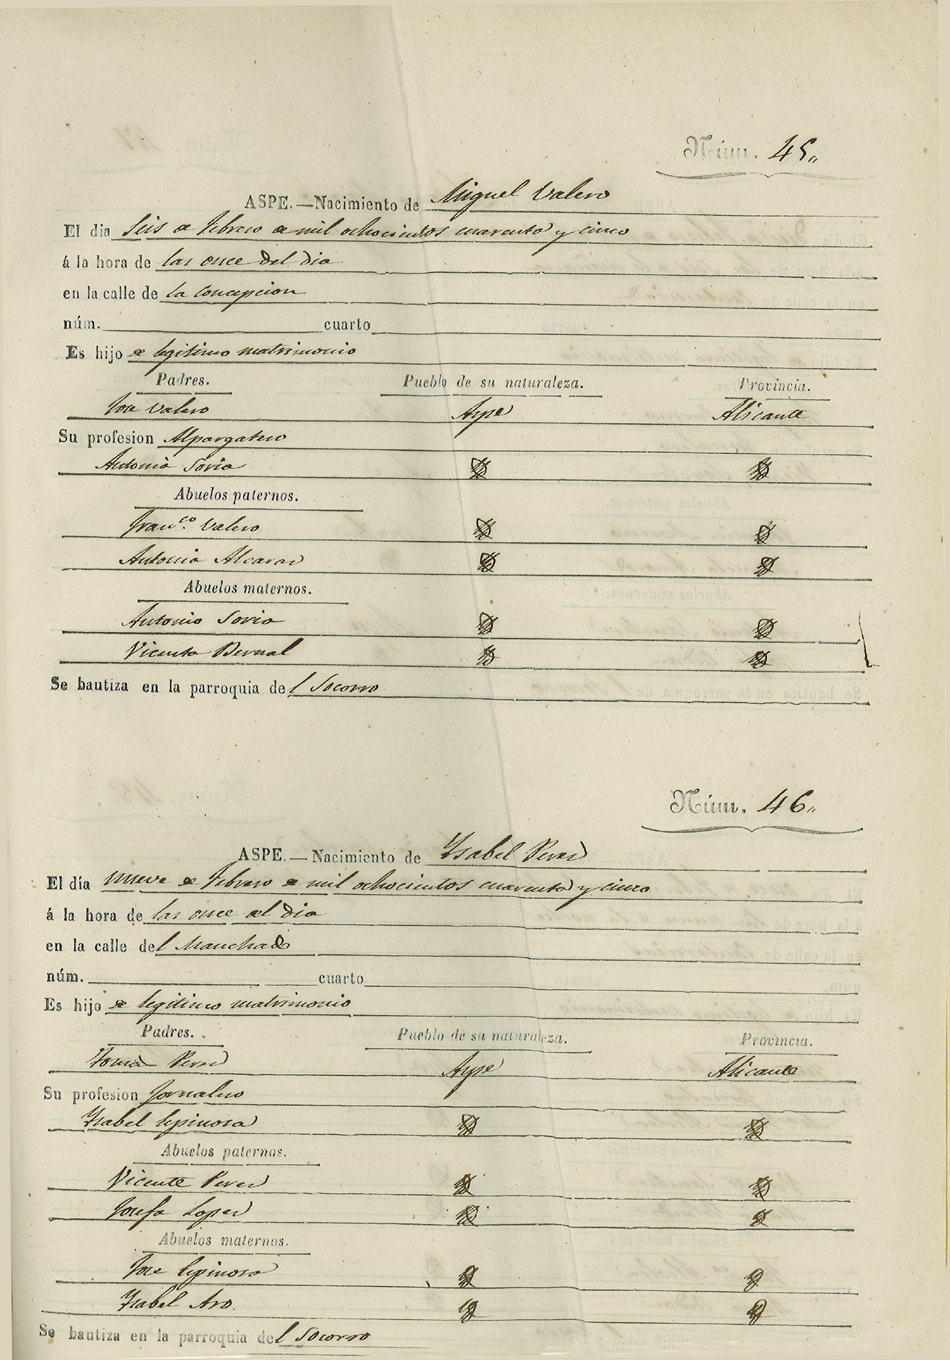 Núm. 45
ASPE.—Nacimiento de Miguel Valero
El dia Seis de Febrero de mil ochocientos cuarenta y cinco
á la hora de las once del dia
en la calle de la Concepcion
núm. cuarto
Es hijo de legitimo matrimonio
Padres. Pueblo de su naturaleza. Provincia.
Jose Valero Aspe Alicante
Su profesion Alpargatero
Antonia Soria
Abuelos paternos.
Franco. Valero
Antonia Alcaraz
Abuelos maternos.
Antonio Soria
Vicenta Bernal
Se bautiza en la parroquia del Socorro
Núm. 46
ASPE.—Nacimiento de Ysabel Perez
El día nueve de Febrero de mil ochocientos cuarenta y cinco
á la hora de las once del dia
en la calle del
núm. cuarto
Es hijo de legitimo matrimonio
Padres. Pueblo de su naturaleza. Provincia.
Tomás Perez Aspe Alicante
Su profesion Jornalero
Ysabel Espinosa
Abuelos paternos.
Vicente Perez
Josefa Lopez
Abuelos maternos.
Jose Espinosa
Ysabel Aro.
Se bautiza en la parroquia del Socorro